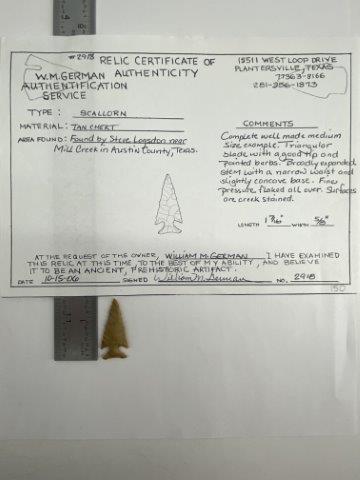 #2918
RELIC CERTIFICATE OF
AUTHENTICITY
W.M.GERMAN
AUTHENTIFICATION
SERVICE
18511 WEST LOOP DRIVE
PLANTERSVILLE, TEXAS
77363-8166
281-256-1873
TYPE: SCALLORN
MATERIAL: TAN CHERT
AREA FOUND: Found by Steve Logsdon near
Mill Creek in Austin County, Texas.
COMMENTS
Complete well made medium
Size example. Triangular
blade with a good tip and
pointed barbs. Broadly expanded
stem with a narrow waist and
slightly concave base. Fine
pressure flaked all over. Surfaces
are creek stained.
LENGTH 1 7/16" WIDTH 5/8"
AT THE REQUEST OF THE OWNER, WILLIAM M. GERMAN I HAVE EXAMINED
THIS RELIC AT THIS TIME, TO THE BEST OF MY ABILITY, AND BELIEVE
IT TO BE AN ANCIENT, PREHISTORIC ARTIFACT.
DATE 10-15-06 SIGNED William M German NO. 2918
150